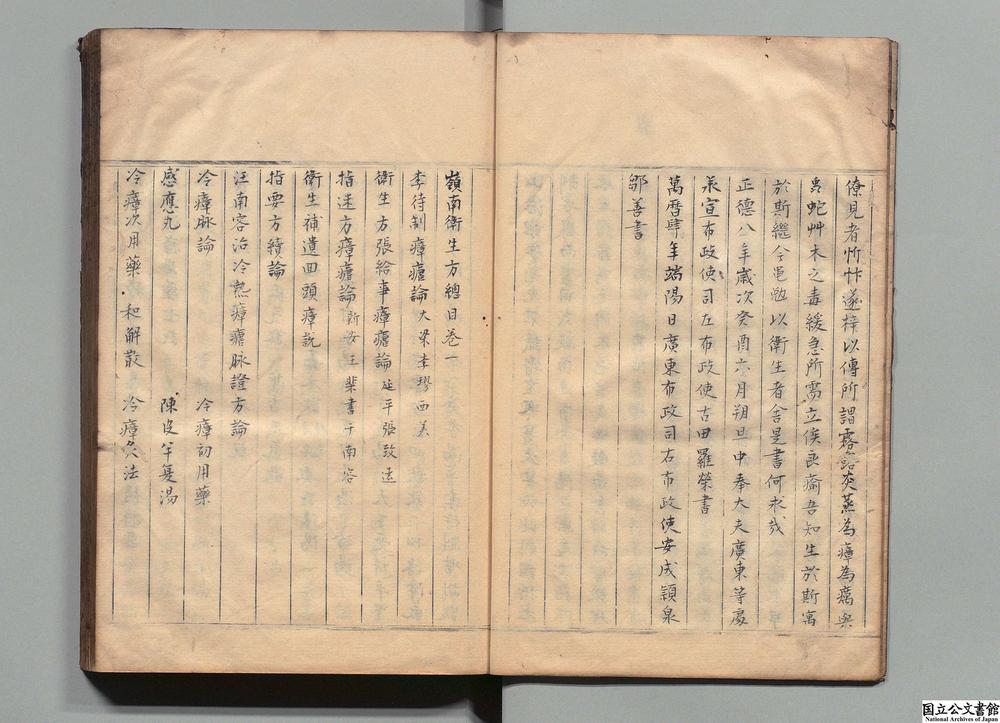 僚見者忻忭遂梓以傳所謂露路炎蒸為瘴為癘與
虫蛇艸木之毒緩急所需立俟良瘉吾知生於斯寓
於斯繼今㞯勉以衛生者舍是書何求哉
正德八年歲次癸酉亦月朔旦中奉大夫廣東等處
承宣布政使司左布政使古田羅榮書
萬曆肆年端陽日廣東布政司右布政使安成穎泉
鄒善書
嶺南衛生方總目卷一
李待制瘴瘧論大梁李璆西美
衛生方張給事瘴瘧論延平張致遠
指迷方瘴瘧論新安王棐書于南容
衛生補遺回頭瘴説
指要方續論
汪南容治冷熱瘴瘧脉證方論
冷瘴脉論 冷瘴初用藥
感應丸 陳皮半夏湯
冷瘴次用藥 和解散 冷瘴灸法
国立公文書館
National Archives of Japan